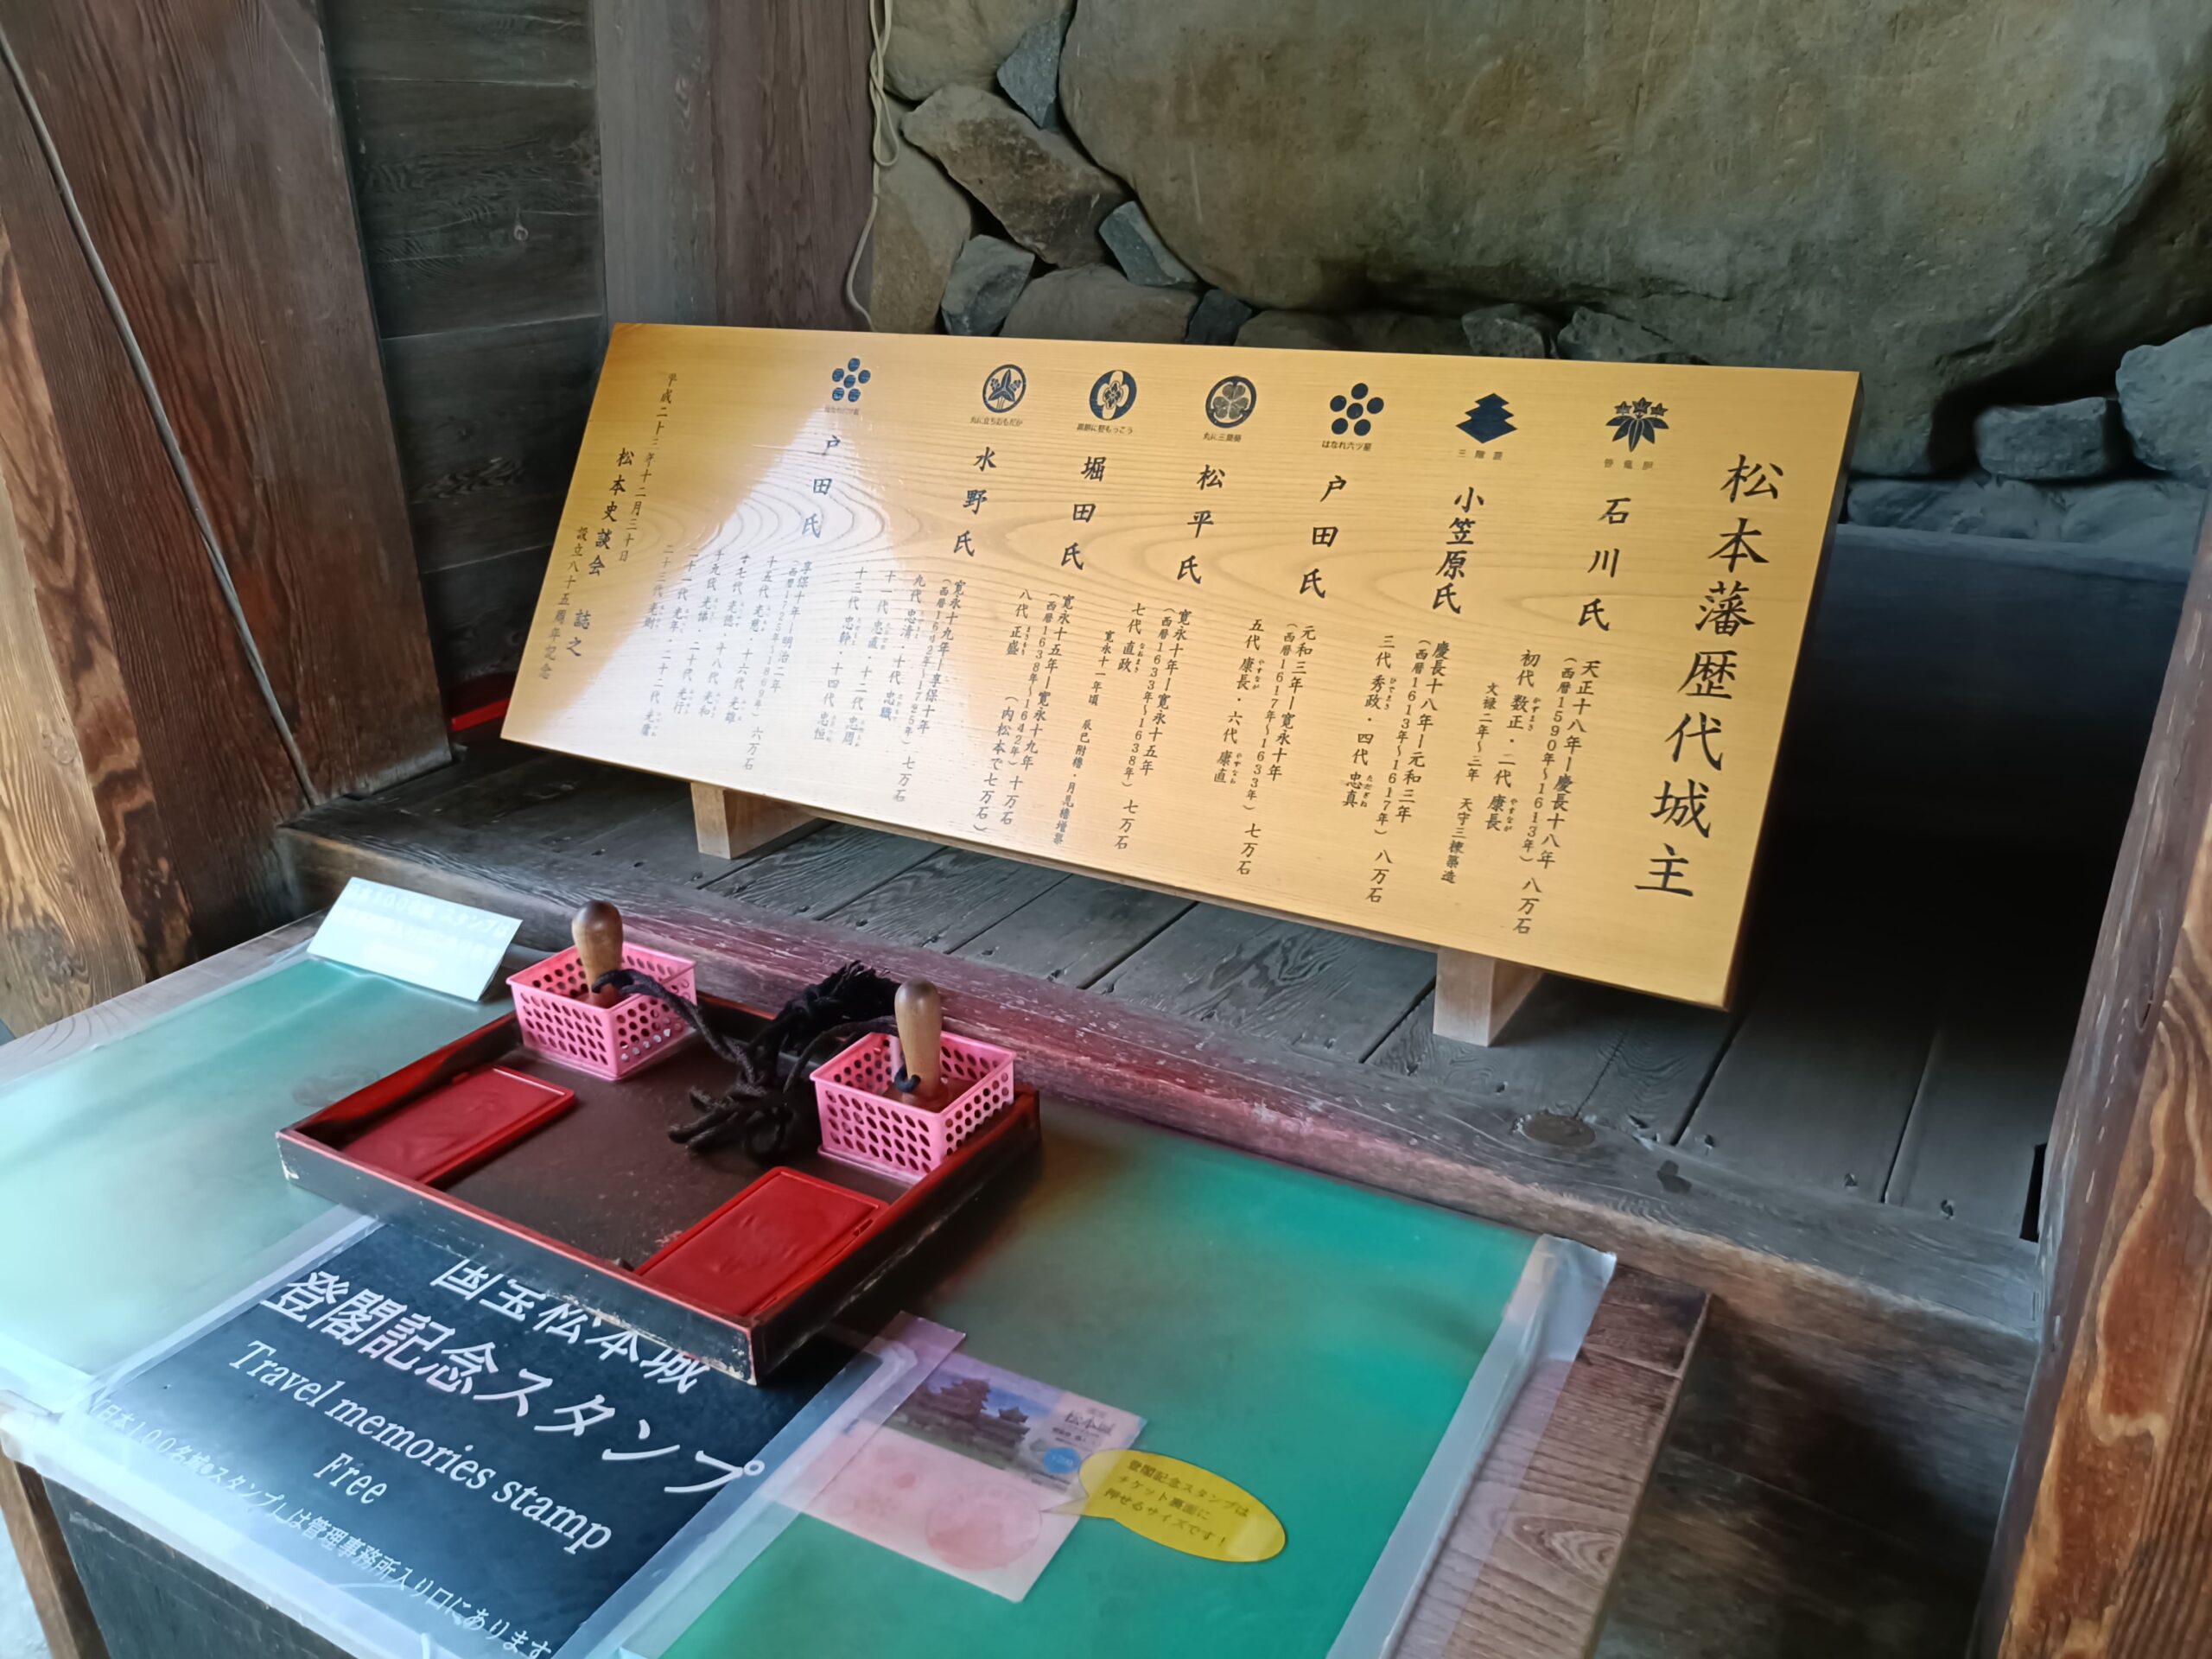 松本藩歴代城主
石川氏
天正十八年―慶長十八年
(西暦1590年~1613年) 八万石
初代 数正・二代 康長
文禄二年~三年 天守三棟築造
三階菱
小笠原氏
慶長十八年―元和三年
(西暦1613年~1617年) 八万石
三代 秀政・四代 忠真
はなれ六ツ星
戸田氏
元和三年―寛永十年
(西暦1617年~1633年) 七万石
五代 康長・六代 康直
丸に三葉葵
松平氏
寛永十年―寛永十五年
(西暦1633年~1638年) 七万石
七代 直政
寛永十一年頃 辰巳附櫓・月見櫓増築
堀田氏
寛永十五年―寛永十九年
(西暦1638年~1642年) 十万石
八代 正盛 (内松本で七万石)
丸に立ちおもだか
水野氏
寛永十九年―享保十年
(西暦1642年~1725年) 七万石
九代 忠清・十代 忠職
十一代 忠直・十二代 忠周
十三代 忠幹・十四代 忠恒
はなれ六ツ星
戸田氏
享保十年―明治二年
(西暦1725年~1869年) 六万石
十五代 光慈・十六代 光雄
十七代 光徳・十八代 光和
十九代 光悌・二十代 光行
二十一代 光年・二十二代 光庸
二十三代 光則
平成二十三年十二月三十日
松本史談会 誌之
設立八十五周年記念
国宝松本城
登閣記念スタンプ
Travel memories stamp
Free
「日本100名城スタンプ」は管理事務所入り口にあります
松本城
登閣記念スタンプは
チケット裏面に
押せるサイズです！